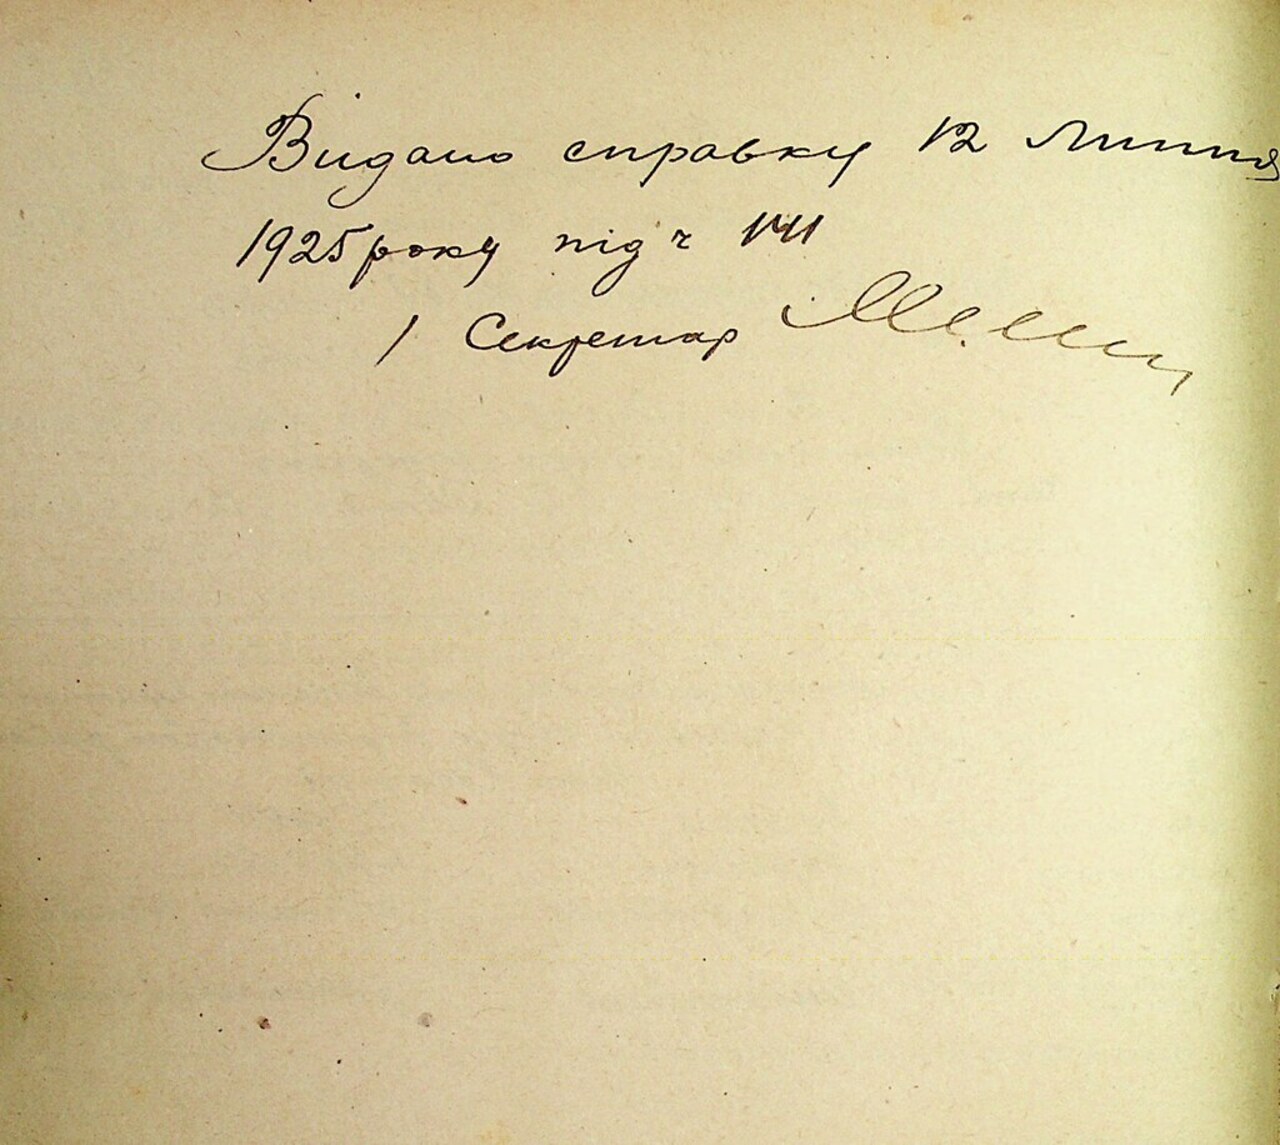 Видано справку 12 Липня
1925 року під ч
/ Секретар